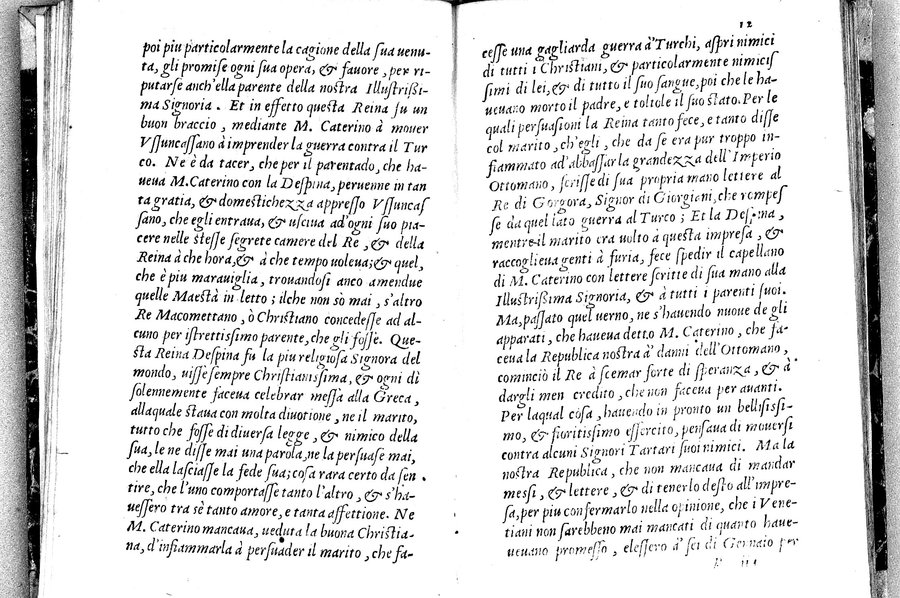 poi piu particolarmente la cagione della sua uenu-
ta, gli promise ogni sua opera, & fauore, per ri-
putarse anch'ella parente della nostra Illustrißi-
ma Signoria. Et in effetto questa Reina fu un
buon braccio, mediante M. Caterino à mouer
Vssuncassano à imprender la guerra contra il Tur
co. Ne è da tacer, che per il parentado, che ha-
ueua M. Caterino con la Despina, peruenne in tan
ta gratia, & domestichezza appresso Vssuncas
sano, che egli entraua, & usciua ad'ogni suo pia-
cere nelle stesse segrete camere del Re, & della
Reina à che hora, & à che tempo uoleua; & quel,
che è piu marauiglia, trouandosi anco amendue
quelle Maestà in letto; ilche non sò mai, s'altro
Re Macomettano, ò Christiano concedesse ad al-
cuno per istrettissimo parente, che gli fosse. Que-
sta Reina Despina fu la piu religiosa Signora del
mondo, uisse sempre Christianissima, & ogni dì
solennemente faceua celebrar messa alla Greca,
allaquale staua con molta diuotione, ne il marito,
tutto che fosse di diuersa legge, & nimico della
sua, le ne disse mai una parola, ne la persuase mai,
che ella lasciasse la fede sua; cosa rara certo da sen
tire, che l'uno comportasse tanto l'altro, & s'ha-
uessero tra sè tanto amore, e tanta affettione. Ne
M. Caterino mancaua, ueduta la buona Christia-
na, d'infiammarla à persuader il marito, che fa-
12
cesse una gagliarda guerra a' Turchi, aspri nimici
di tutti i Christiani, & particolarmente nimicis
simi di lei, & di tutto il suo sangue, poi che le ha-
ueuano morto il padre, e toltole il suo stato. Per le
quali persuasioni la Reina tanto fece, e tanto disse
col marito, ch'egli, che da se era pur troppo in-
fiammato ad'abbassar la grandezza dell'Imperio
Ottomano, scrisse di sua propria mano lettere al
Re di Gorgora, Signor di Giorgiani, che rompes
se da quel lato guerra al Turco; Et la Despina,
mentre il marito era uolto à questa impresa, &
raccoglieua genti à furia, fece spedir il capellano
di M. Caterino con lettere scritte di sua mano alla
Illustrißima Signoria, & à tutti i parenti suoi.
Ma, passato quel uerno, ne s'hauendo nuoue de gli
apparati, che haueua detto M. Caterino, che fa-
ceua la Republica nostra a' danni dell'Ottomano,
cominciò il Re à scemar forte di speranza, & à
dargli men credito, che non faceua per auanti.
Per laqual cosa, hauendo in pronto un bellisissi-
mo, & fioritissimo essercito, pensaua di mouersi
contra alcuni Signori Tartari suoi nimici. Ma la
nostra Republica, che non mancaua di mandar
messi, & lettere, & di tenerlo desto all'impre-
sa, per piu confermarlo nella opinione, che i Vene-
tiani non sarebbeno mai mancati di quanto haue-
ueuano promesso, elessero a' sei di Gennaio per